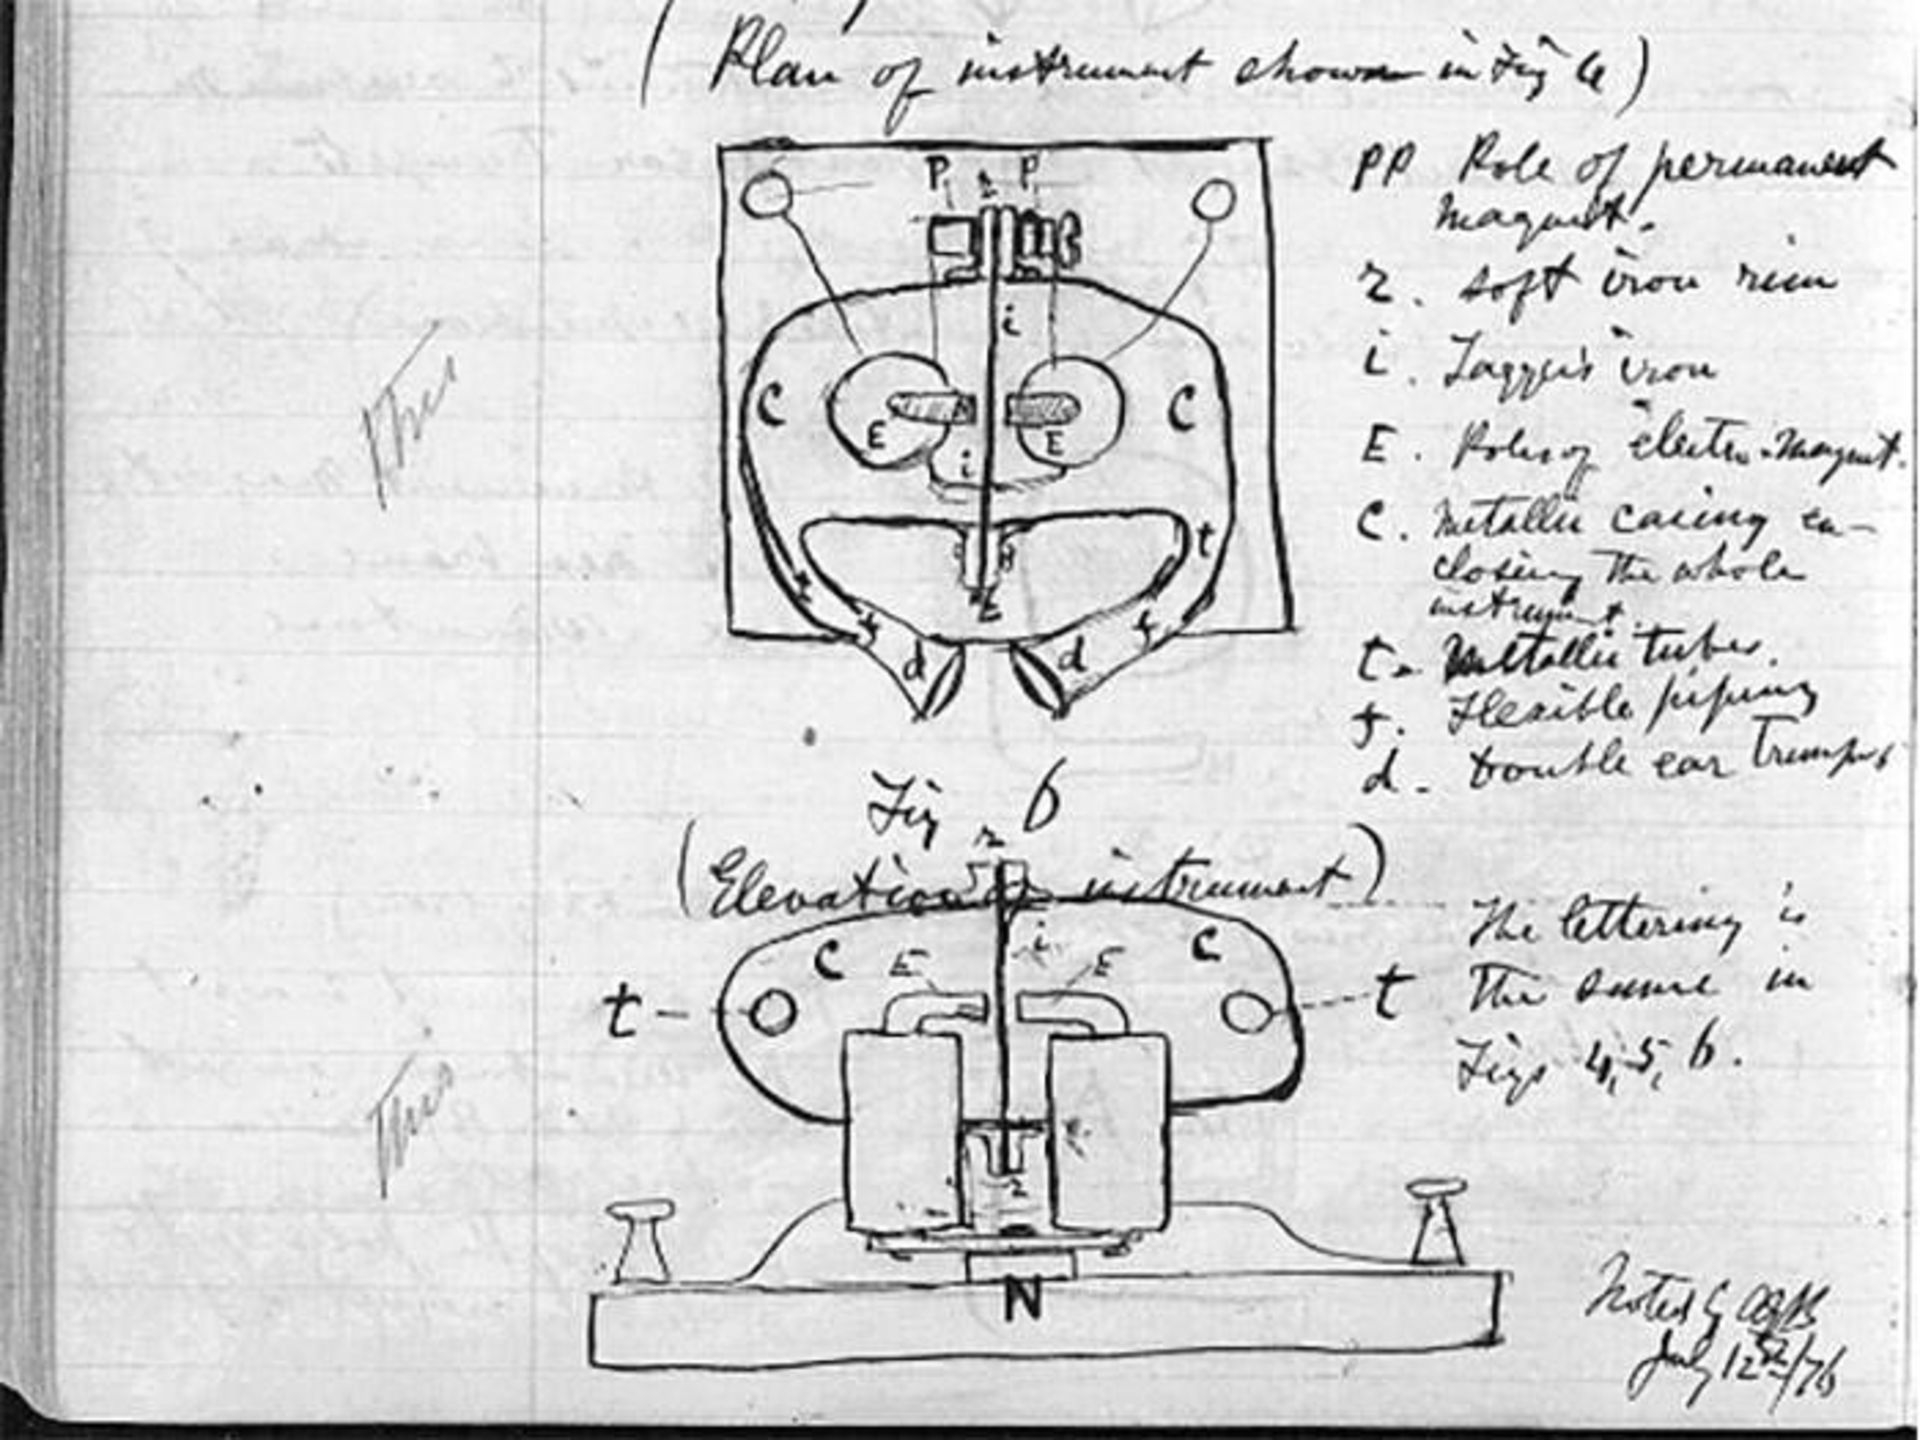 (Plan of instrument shown in Fig 4)
P r P
i
C C
E E
i
t
r
f f
d d
PP Pole of permanent
Magnet.
r. soft iron rim
i. iron
E. Poles of electro-magnet.
C. Metallic casing en-
closing the whole
instrument.
t. Metallic tubes.
f. Flexible piping
d. Double ear trumpet
Fig 6
r
(Elevation of instrument)
C i C
E E
t t
r
N
The lettering is
the same in
Figs 4, 5, 6.
Noted by AGB
July 12th/76